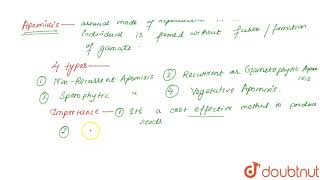 Apomixis — asexual mode of reproduction in
individual is formed without fusion / formation
of gamete
4 types —
① Non-Recurrent Apomixis ② Recurrent or Gametophytic Apomixis
③ Sporophytic " ④ Vegetative Apomixis.
Importance — ① It's a cost effective method to produce
seeds
②
doubtnut